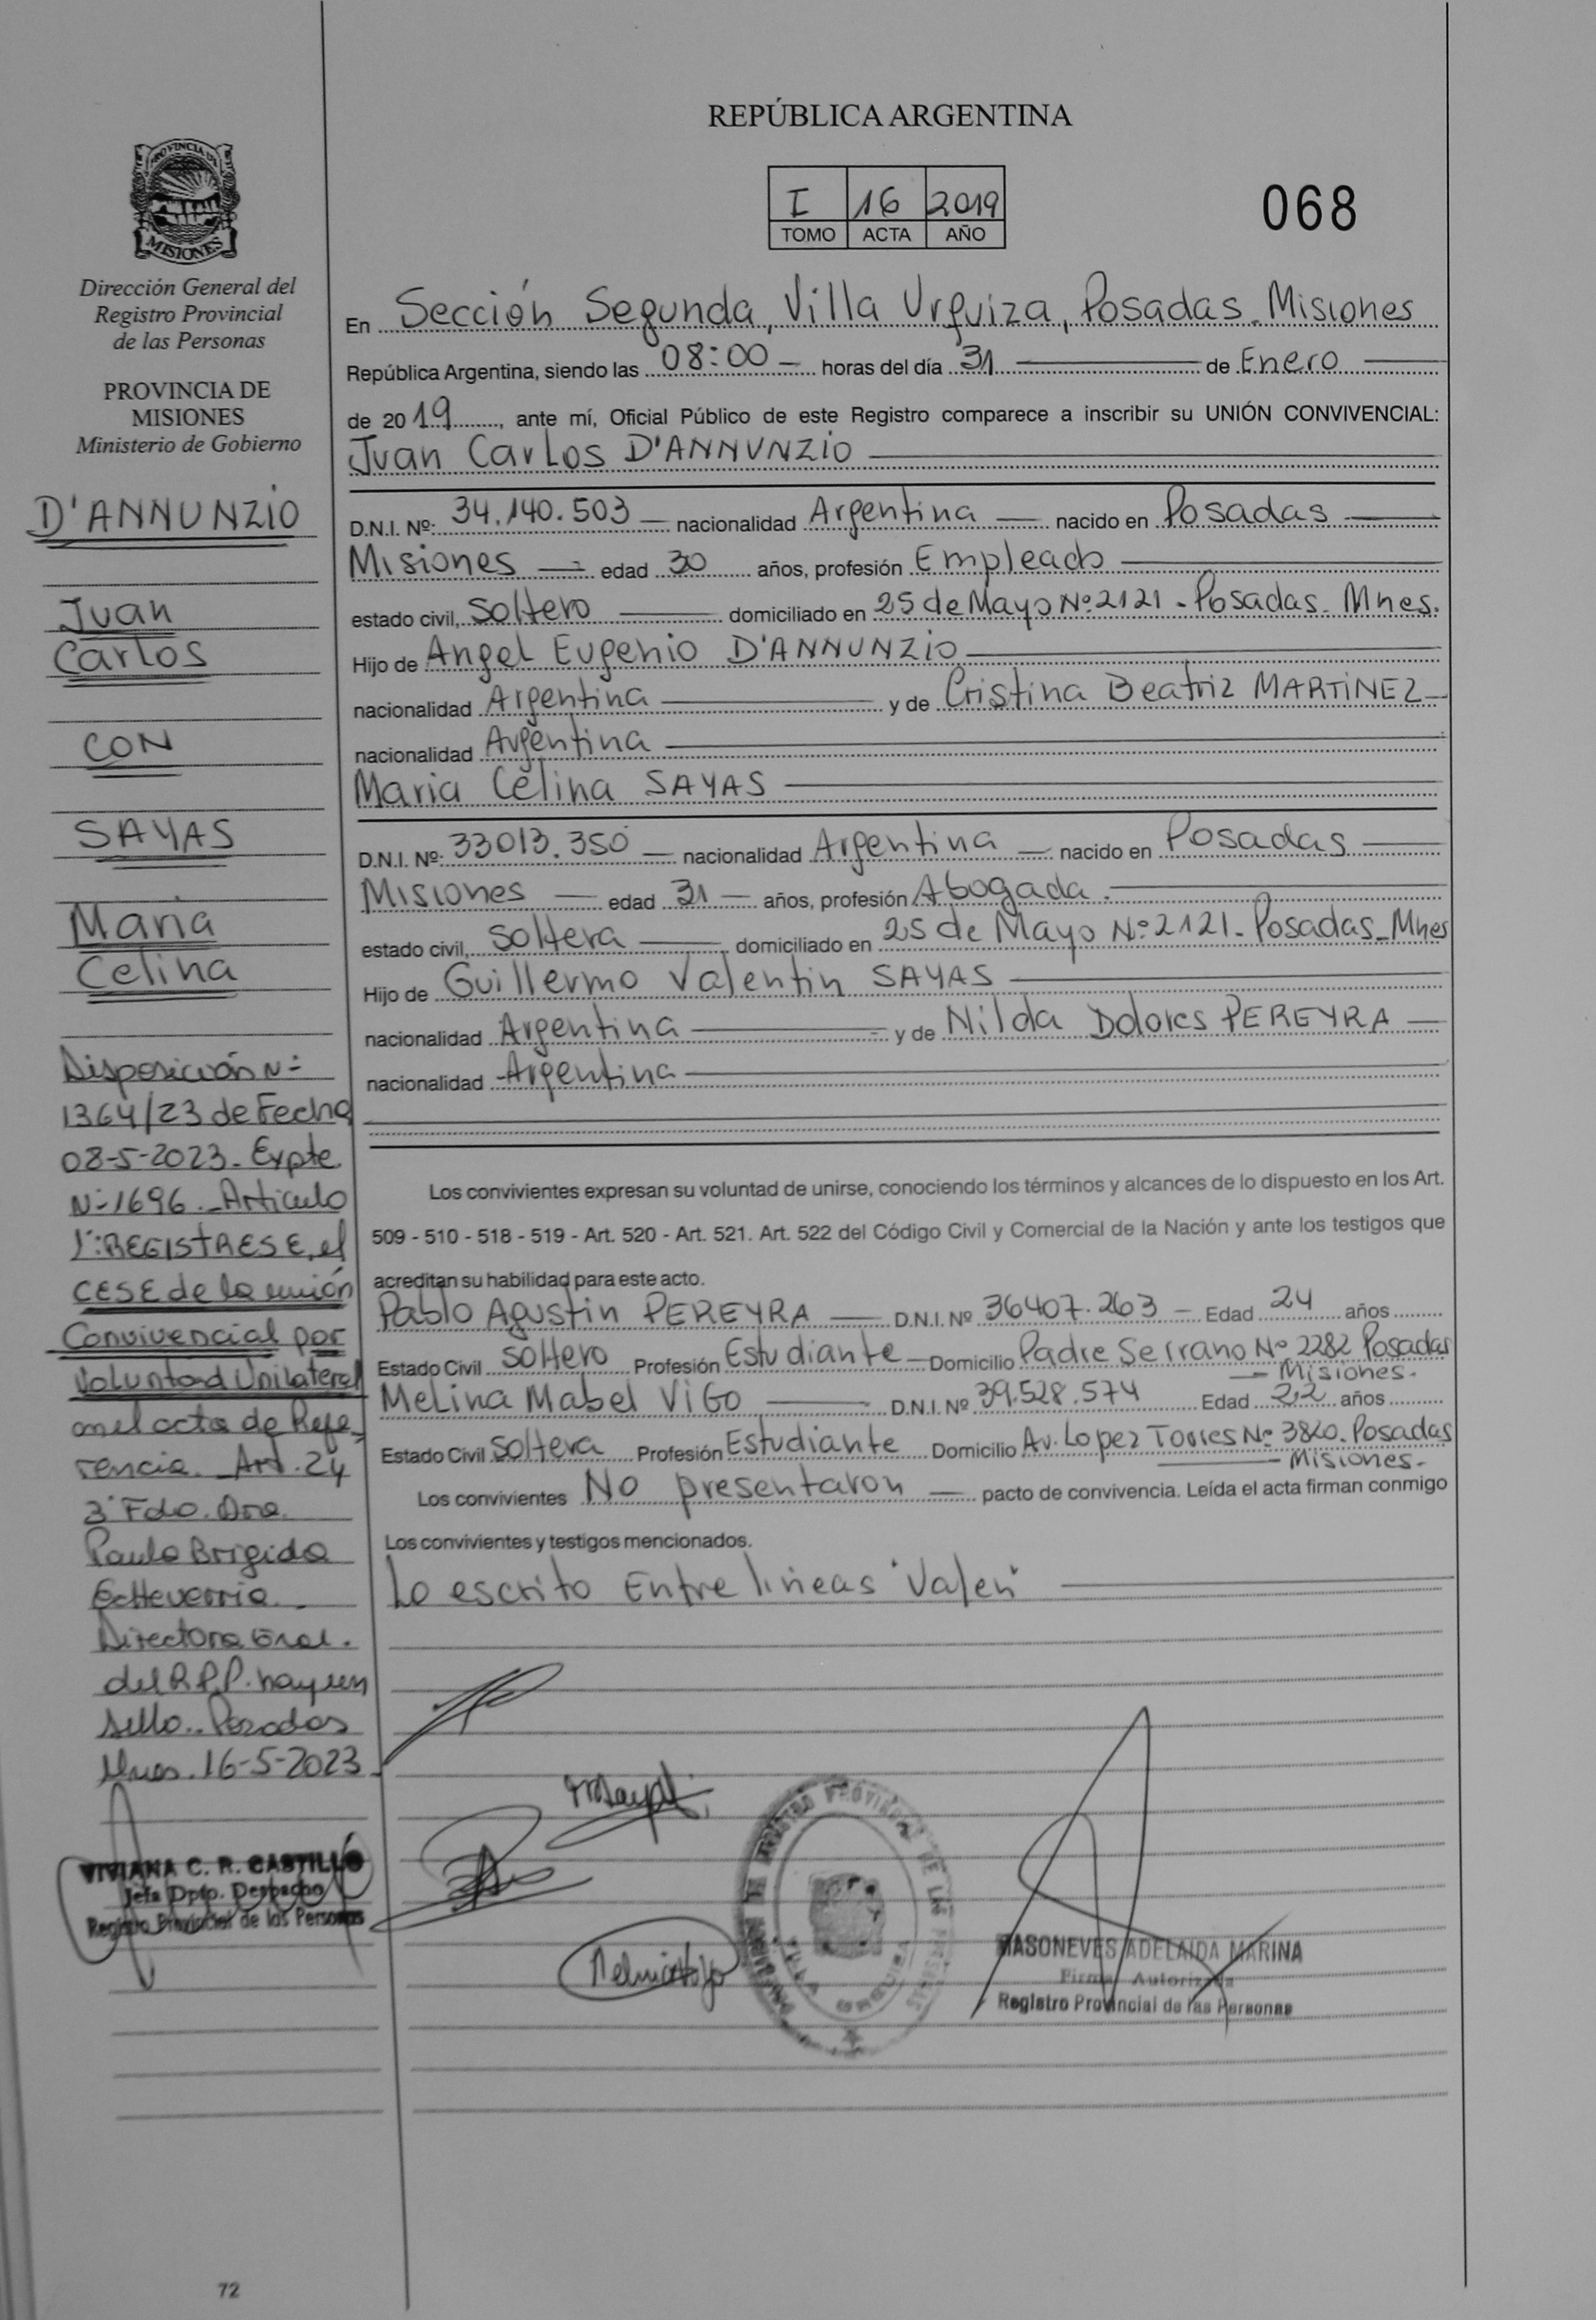 REPÚBLICA ARGENTINA
I 16 2019
TOMO ACTA AÑO
068
PROVINCIA DE
MISIONES
Dirección General del
Registro Provincial
de las Personas
PROVINCIA DE
MISIONES
Ministerio de Gobierno
D'ANNUNZIO
Juan
Carlos
CON
SAYAS
Maria
Celina
Disposición N=
1364/23 de Fecha
08-5-2023. Expte
N=1696._Articulo
1º:REGISTRESE, el
CESE de la unión
Convivencial por
Voluntad Unilateral
en el acta de Refe_
rencia._Art.24
3º Fdo. Dra.
Paula Brigida
Echeverria.
Directora Gral.
del R.P.P. hay un
sello._Posadas
Mnes.16-5-2023.
VIVIANA C. R. CASTILLO
Jefa Dpto. Despacho
Registro Provincial de las Personas
En Sección Segunda, Villa Urquiza, Posadas. Misiones
República Argentina, siendo las 08:00 horas del día 31 de Enero
de 2019, ante mí, Oficial Público de este Registro comparece a inscribir su UNIÓN CONVIVENCIAL:
Juan Carlos D'ANNUNZIO
D.N.I. Nº: 34.140.503 nacionalidad Argentina nacido en Posadas
Misiones edad 30 años, profesión Empleado
estado civil, Soltero domiciliado en 25 de Mayo Nº2121-Posadas-Mnes.
Hijo de Angel Eugenio D'ANNUNZIO
nacionalidad Argentina y de Cristina Beatriz MARTINEZ
nacionalidad Argentina
Maria Celina SAYAS
D.N.I. Nº: 33013.350 nacionalidad Argentina nacido en Posadas
Misiones edad 31 años, profesión Abogada.
estado civil, Soltera domiciliado en 25 de Mayo Nº2121-Posadas-Mnes
Hijo de Guillermo Valentin SAYAS
nacionalidad Argentina y de Nilda Dolores PEREYRA
nacionalidad Argentina
Los convivientes expresan su voluntad de unirse, conociendo los términos y alcances de lo dispuesto en los Art.
509 - 510 - 518 - 519 - Art. 520 - Art. 521. Art. 522 del Código Civil y Comercial de la Nación y ante los testigos que
acreditan su habilidad para este acto.
Pablo Agustin PEREYRA D.N.I. Nº 36407.263 Edad 24 años
Estado Civil Soltero Profesión Estudiante Domicilio Padre Serrano Nº 2282 Posadas
Misiones.
Melina Mabel ViGo D.N.I. Nº 39.528.574 Edad 22 años
Estado Civil Soltera Profesión Estudiante Domicilio Av. Lopez Torres Nº 3820. Posadas
Misiones.
Los convivientes No presentaron pacto de convivencia. Leída el acta firman conmigo
Los convivientes y testigos mencionados.
Lo escrito Entre lineas "Valen"
REGISTRO PROVINCIAL DE LAS PERSONAS
VILLA URQUIZA
MASONEVES ADELAIDA MARINA
Firma Autorizada
Registro Provincial de las Personas
72